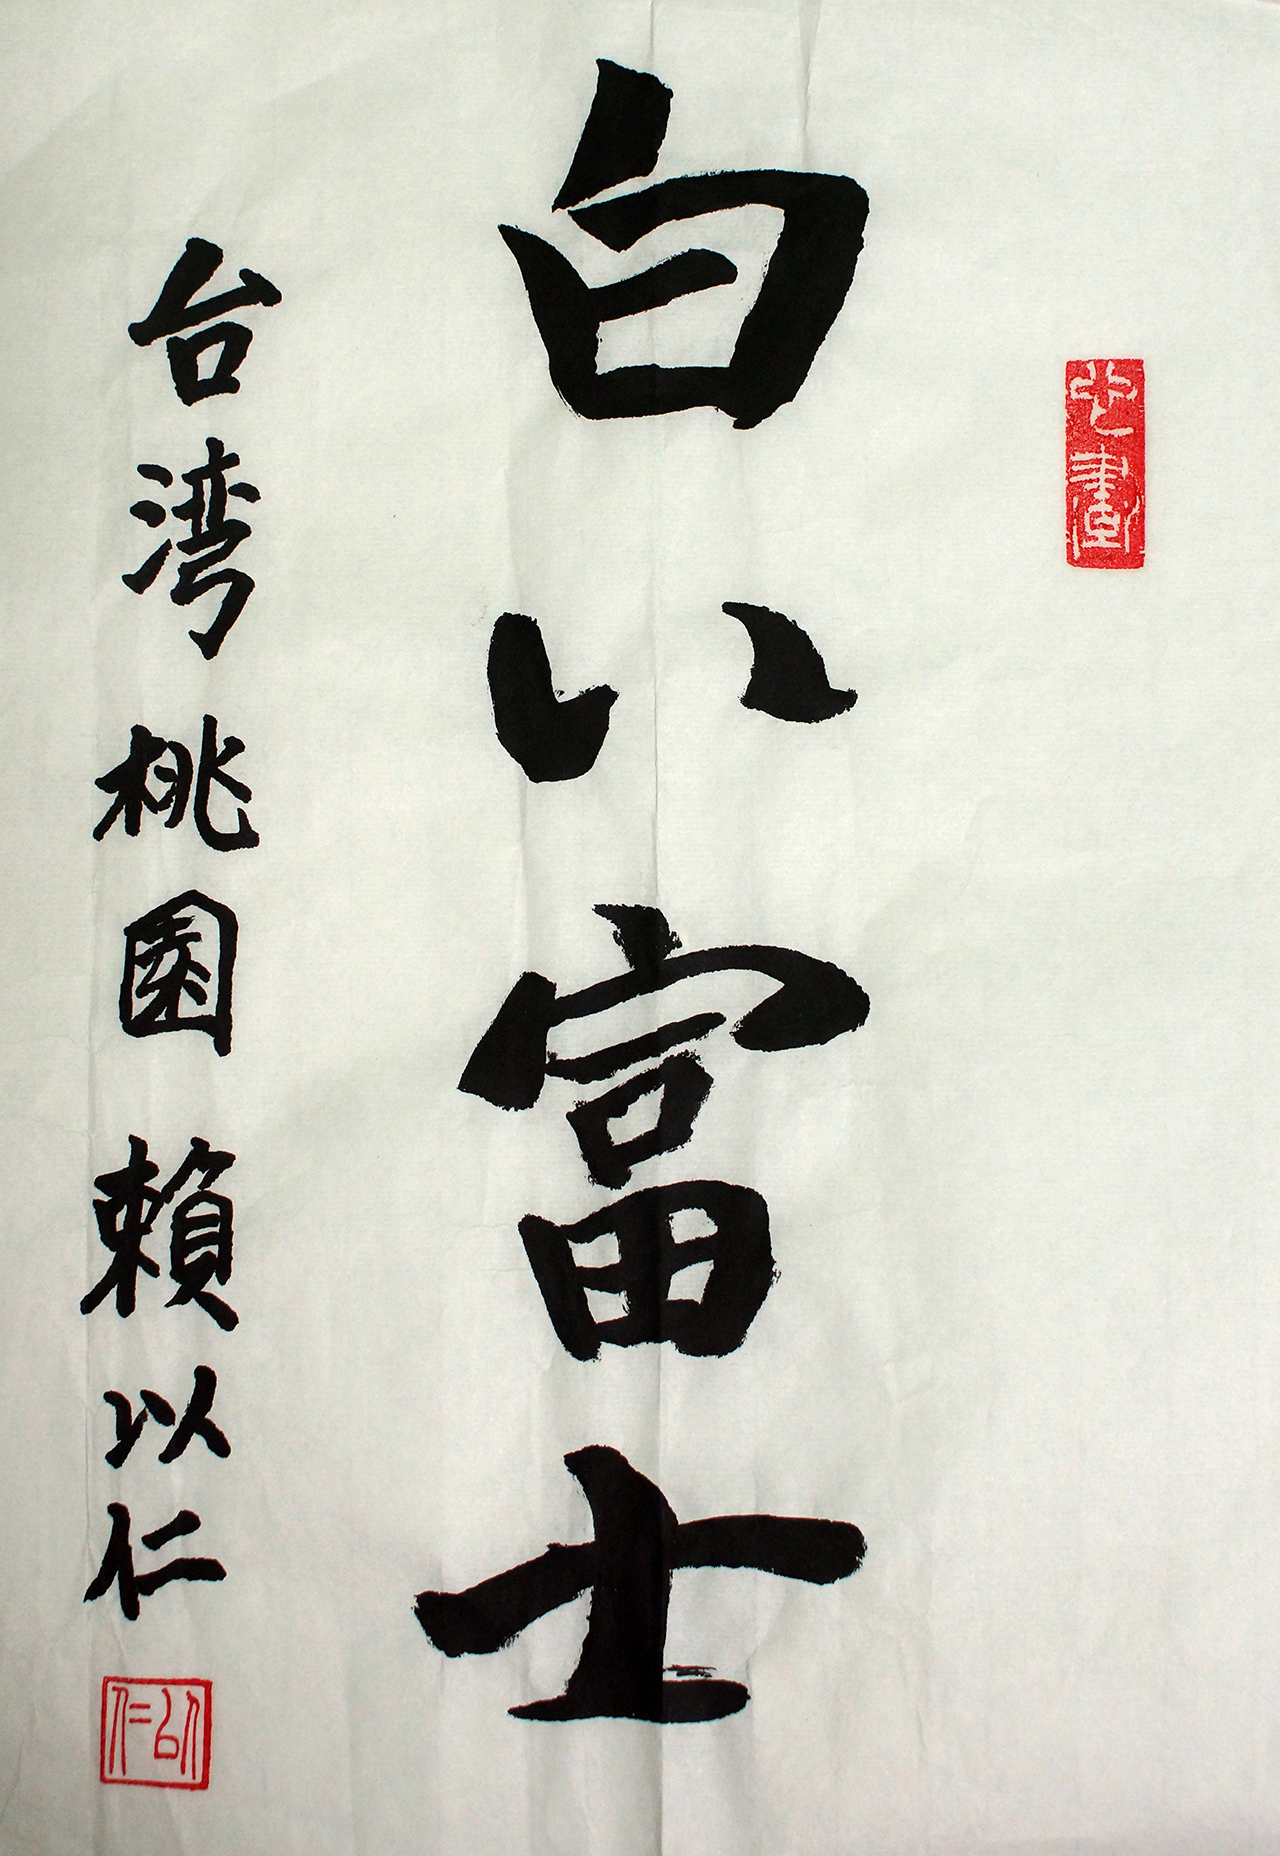 白い富士
台湾 桃園 賴以仁
以仁